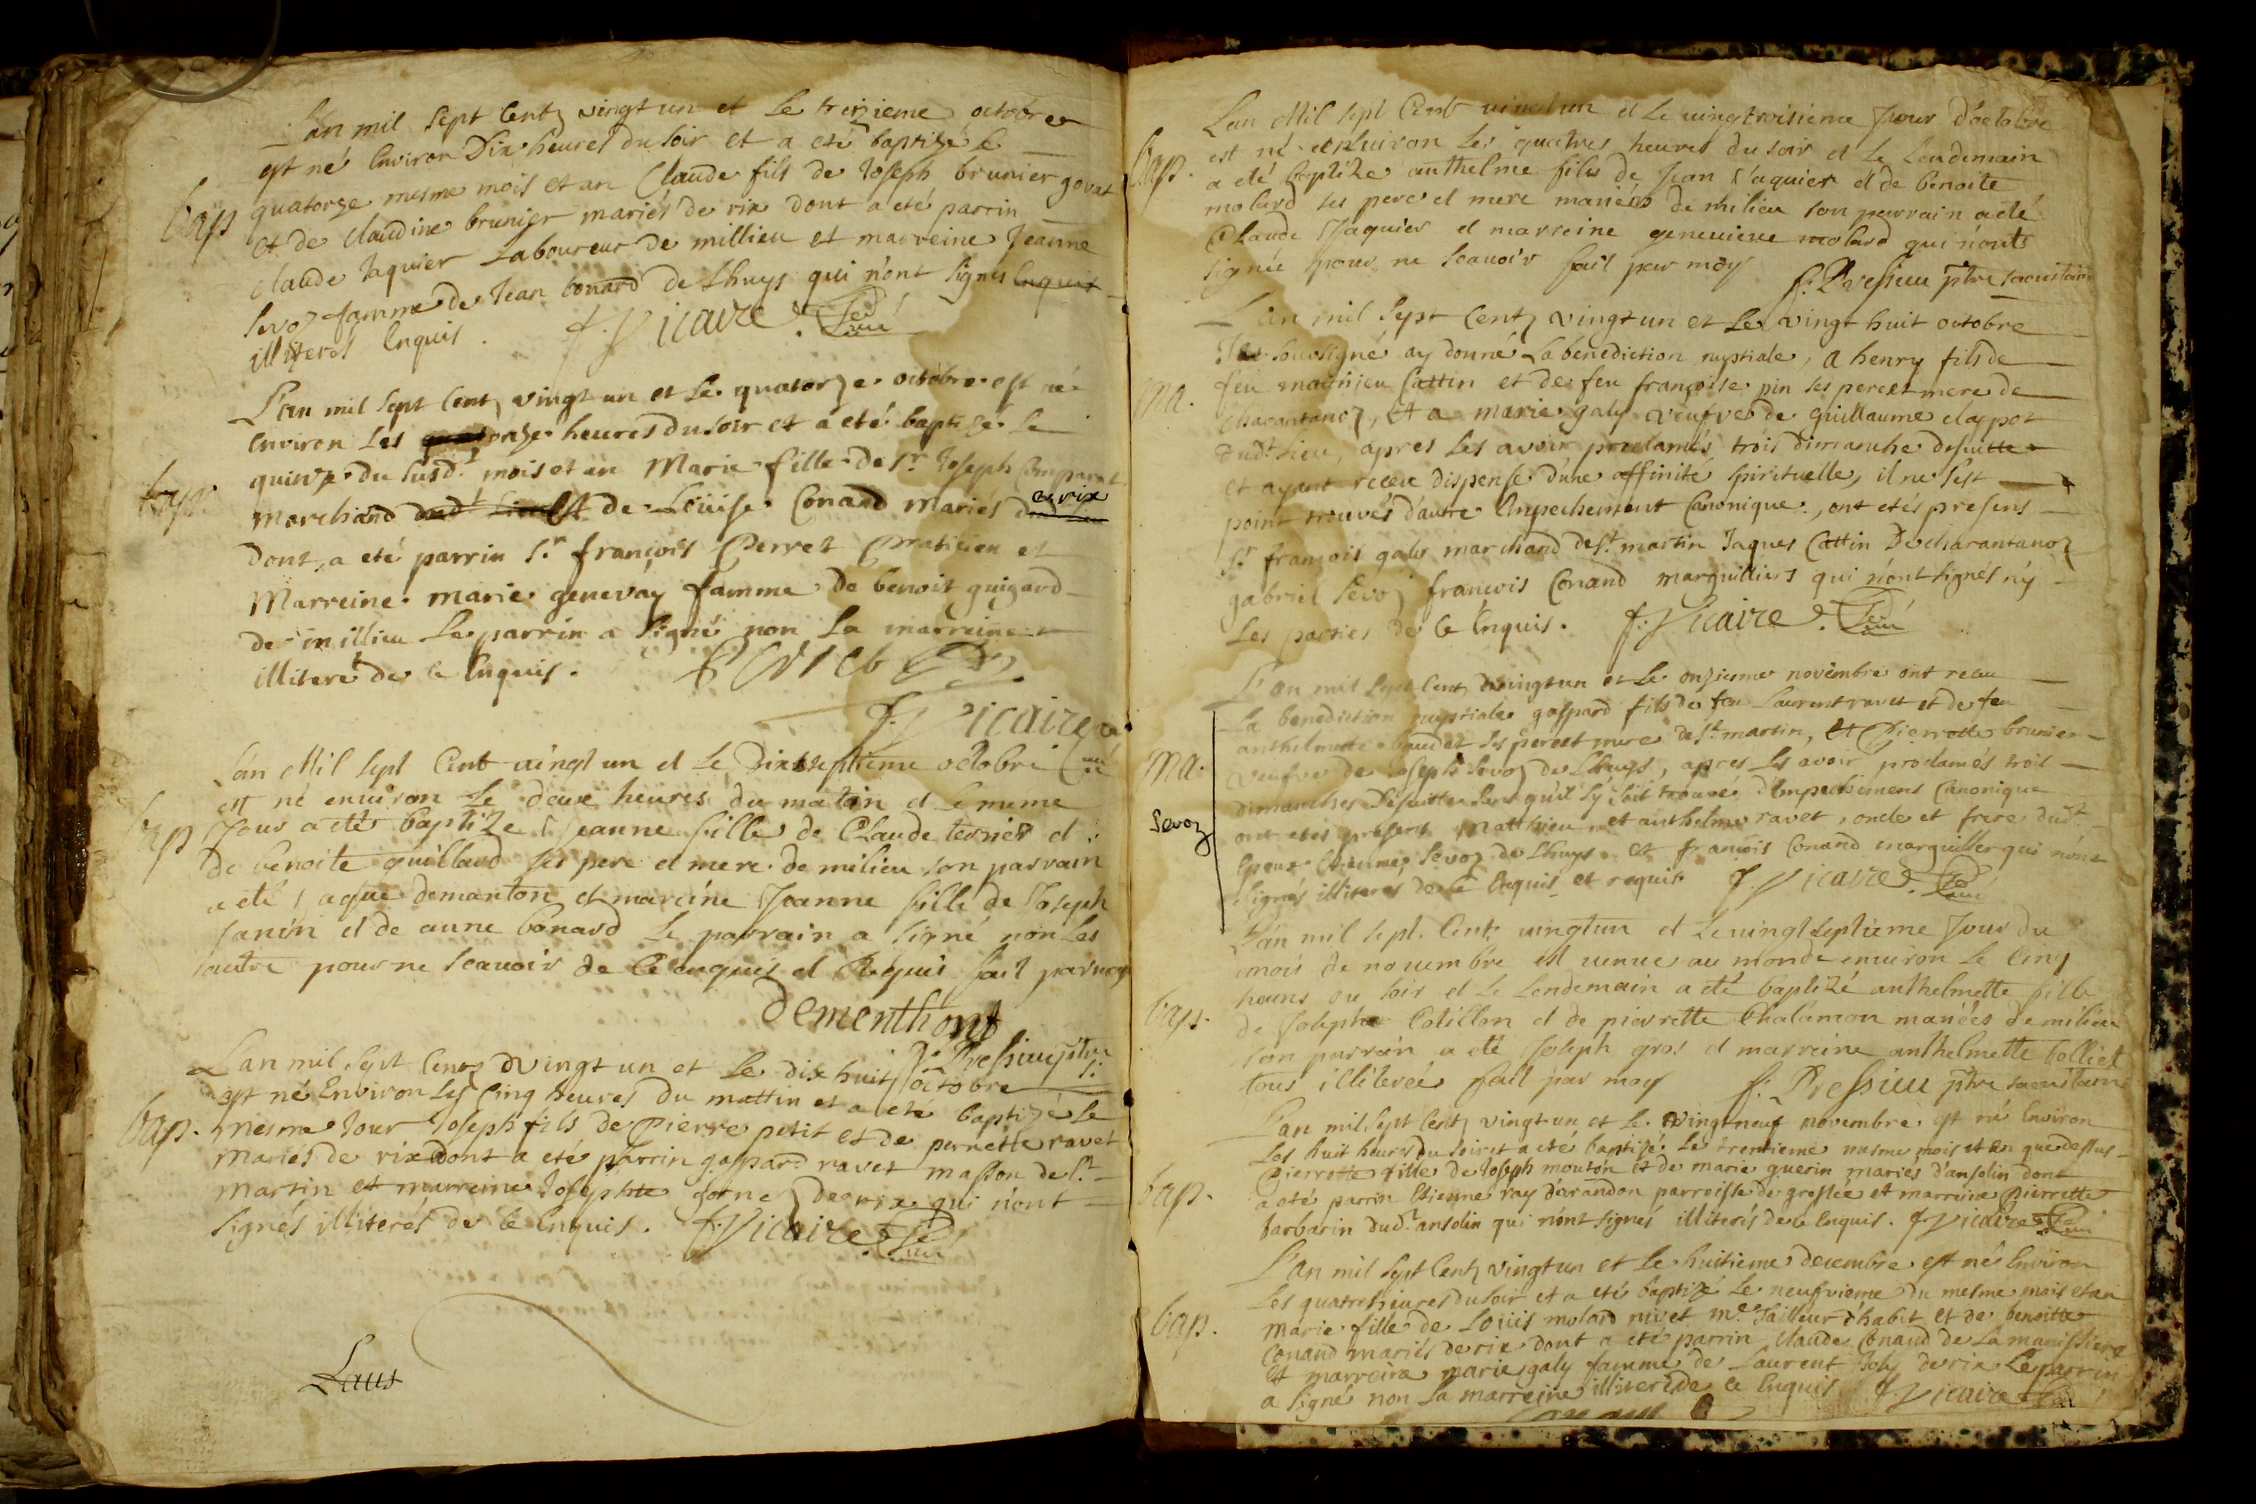 L'an mil sept Centz vingt un et le treizieme octobre
est né Environ Dix heures du soir et a eté baptizé le
bap
quatorze mesme mois et an Claude fils de Joseph brunier govat
et de Claudine brunier mariés de rix dont a eté parrin
Claude Jaquier Laboureur de millieu et marreine Jeanne
sevoz famme de Jean Conard de Lhuys qui n'ont signés Enquit
illiteres Enquis. f. Vicaire Curé
L'an mil sept Centz vingt un et le quatorze octobre est né
Environ les onze heures du soir et a eté baptizé le
bap.
quinze du susd.t mois et an Marie fille de S.r Joseph Comparat
Marchand dud.t Lieu Et de Loüise Conand Mariés de rix
Dont a eté parrin S.r françois Perret Praticien et
Marreine marie genevay famme de benoit guigard
de millieu Le parrin a signé non La marreine
illiteré de ce Enquis. Perret
f. Vicaire
Curé
Lan Mil sept Cent vingt un et le Dixseptieme octobre
est né environ le deux heures du matin et le meme
bap
Jour a eté baptize Jeanne fille de Claude ternier et
de benoite guillard ses pere et mere de milieu son parrain
a eté Jaque demanton et mareine Jeanne fille de Joseph
Janin et de anne Conard le parrain a signé non les
autre pour ne scauoir de Ce enquis et Requis fait par moy
Dementhont
f. Pressieu ptre S:
Lan mil sept Centz vingt un et le dix huit octobre
est né Environ les Cinq heures du mattin et a eté baptizé le
bap.
mesme Jour Joseph fils de Pierre petit et de pernette ravet
Mariés de rix dont a eté parrin gaspard ravet masson de S.t
Martin et marreine Josephte de rix qui n'ont
signés illiterés de ce Enquis. f. Vicaire Curé
Laus
Lan Mil sept Cent vingt un et le vingtroisieme Jour d'octobre
bap.
est né environ les quatres heures du soir et le lendemain
a eté baptize anthelme fils de Jean Jaquier et de benoite
molard ses pere et mere mariés de milieu son parrain a eté
Claude Jaquier et marreine geneuieue molard qui n'onts
signée pour ne scauoir fait par moy f. Pressieu ptre sacristain
L'an mil sept Centz vingt un et le vingt huit octobre
Je soussigné ay donné La benediction nuptiale, a henry fils de
ma.
feu mathieu Cattin et de feu françoise pin ses pere et mere de
Charantanoz, Et a marie galy veufve de guillaume claypot
dud.t Lieu, apres les avoir proclamés trois dimanche desuitte
et ayant receu dispense d'une affinité spirituelle, il ne s'est
point trouvés d'autre Empechement Canonique, ont etés presens
S.r françois galy marchand de S.t martin Jaques Cattin De charantanoz
gabriel sevoz françois Conand marguilliers qui n'ont signés n'y
Les parties de ce Enquis. f. Vicaire Curé
L'an mil sept Centz vingt un et le onzieme novembre ont receu
La benediction nuptiale gaspard fils de feu Laurent ravet et de feu
anthelmette baudet ses pere et mere de S.t martin, Et Pierrotte brunier
ma.
veufve de Joseph sevoz de Lhuys, apres les avoir proclamés trois
dimanches Desuitte sans qu'il s'y soit trouvé d'Empechemens Canonique
sevoz
ont etés present Matthieu et anthelme ravet, oncle et frere dud.t
Epoux Etienne sevoz de Lhuys et françois Conand marguillier qui n'ont
signés illiteres de ce Enquis et requis f. Vicaire Curé
L'an mil sept. Cent vingtun et le vingt septieme Jour du
mois de nouembre est venue au monde enuiron le Cinq
heurs du soir et le Lendemain a eté baptizé anthelmette fille
bap.
de Joseph Cotillon et de pierrette Chalamon mariées de milieu
son parrain a eté Joseph gros et marreine anthelmette belliet
tous illiterée fait par moy f. Pressieu ptre sacristain
L'an mil sept Centz vingt un et le vingtneuf novembre est né Environ
Les huit heures du soir et a eté baptizé le trentieme mesme mois et an que dessus
Pierrotte fille de Joseph mouton et de marie guerin mariés d'ansolin dont
bap.
a eté parrin Etienne ray d'arandon parroisse de greslée et marreine Pierrette
barbarin dud.t ansolin qui n'ont signés illiterés de ce Enquis. f. Vicaire Curé
L'an mil sept Centz vingt un et le huitieme decembre est né Environ
Les quatre heures du soir et a eté baptizé le neufvieme du mesme mois et an
bap.
Marie fille de Loüis molard nivet M.e Tailleur d'habit et de benoitte
Conand mariés de rix dont a eté parrin Claude Conand de La
Et marreine marie galy famme de Laurent Joly de rix Le parrin
a signé non La marreine illiteré de ce Enquis f. Vicaire Curé